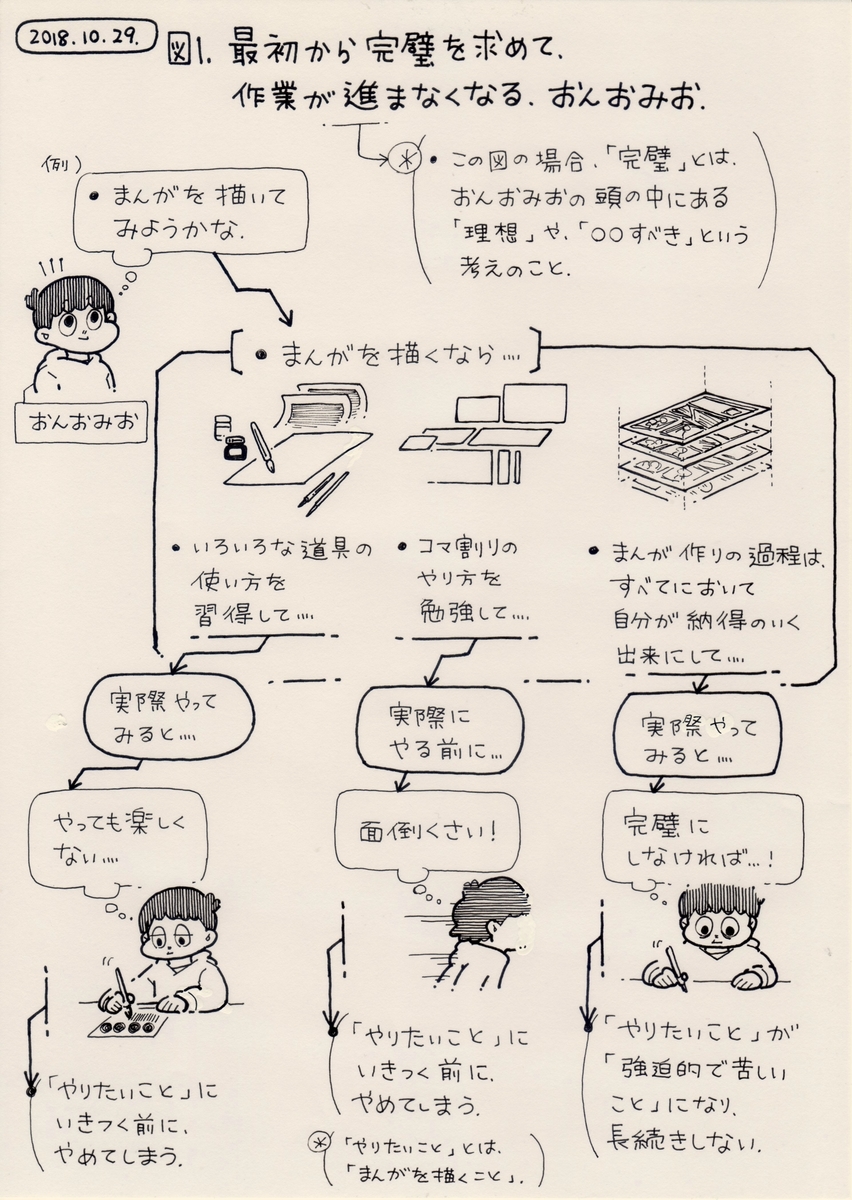 2018.10.29.
図1. 最初から完璧を求めて、
作業が進まなくなる、おんおみお.
(例)
・まんがを描いて
みようかな.
おんおみお
＊
・この図の場合、「完璧」とは、
おんおみおの頭の中にある
「理想」や、「○○すべき」という
考えのこと.
・まんがを描くなら….
・いろいろな道具の
使い方を
習得して….
・コマ割りの
やり方を
勉強して….
・まんが作りの過程は、
すべてにおいて
自分が納得のいく
出来にして….
実際やって
みると….
やっても楽しく
ない….
「やりたいこと」に
いきつく前に、
やめてしまう.
実際に
やる前に…
面倒くさい!
「やりたいこと」に
いきつく前に、
やめてしまう.
＊「やりたいこと」とは、
「まんがを描くこと」.
実際やって
みると….
完璧に
しなければ…!
「やりたいこと」が
「強迫的で苦しい
こと」になり、
長続きしない.